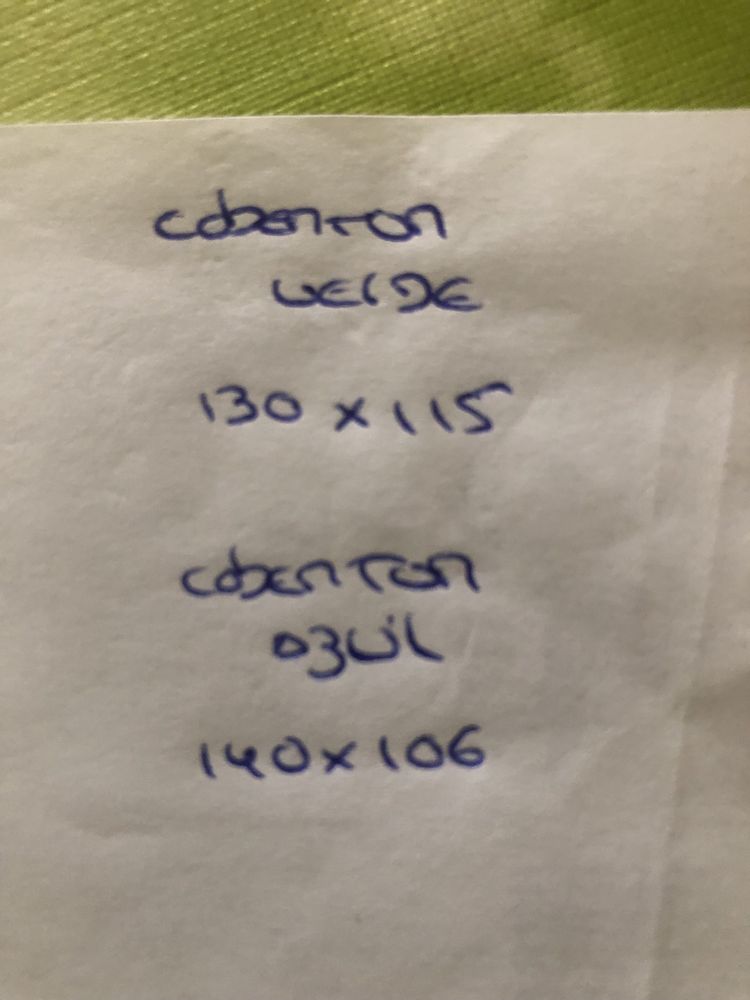 cobertor
verde
130 x 115
cobertor
azul
140 x 106